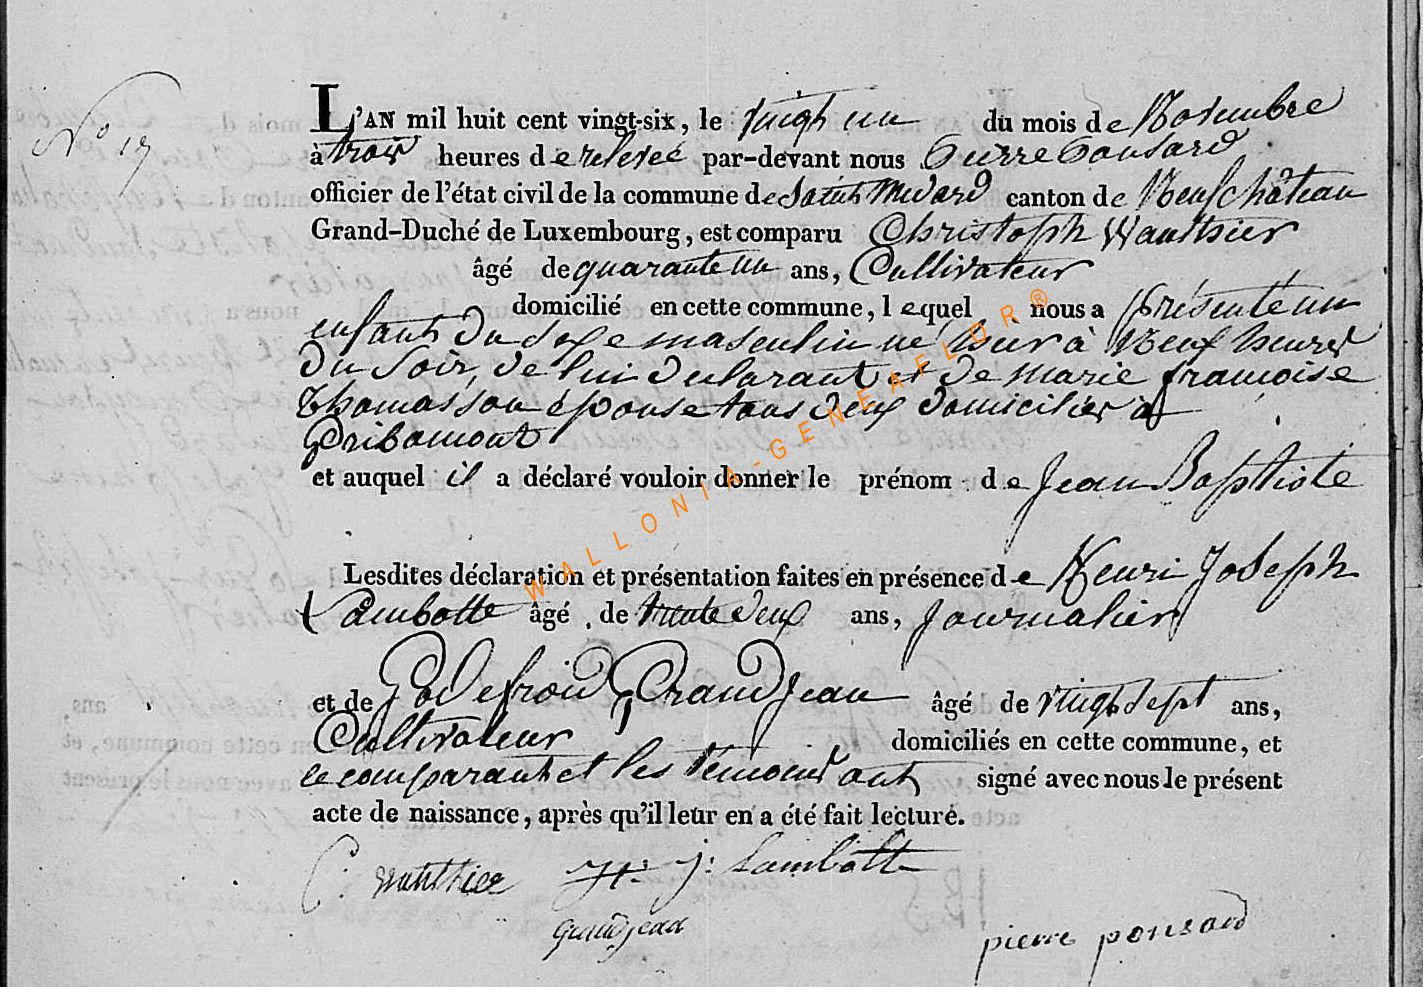 N° 17
L'AN mil huit cent vingt-six, le vingt un du mois de Novembre
à trois heures de relevée par-devant nous Pierre Ponsard
officier de l'état civil de la commune de Saint Medard canton de Neufchâteau
Grand-Duché de Luxembourg, est comparu Christoph Wauthier
âgé de quarante un ans, Cultivateur
domicilié en cette commune, lequel nous a présenté un
enfant du sexe masculin né hier à Neuf heures
du soir, de lui declarant et de marie françoise
Thomasson épouse tous deux domiciliés à
Gribomont
et auquel il a déclaré vouloir donner le prénom de Jean Baptiste
Lesdites déclaration et présentation faites en présence de Henri Joseph
Lambotte âgé de trente deux ans, journalier
et de Godefroid Grandjean âgé de vingt sept ans,
Cultivateur domiciliés en cette commune, et
le comparant et les témoins ont signé avec nous le présent
acte de naissance, après qu'il leur en a été fait lecture.
C. wauthier H: j: Lambotte
grandjean
pierre ponsard
WALLONIA-GENEAFLOR®